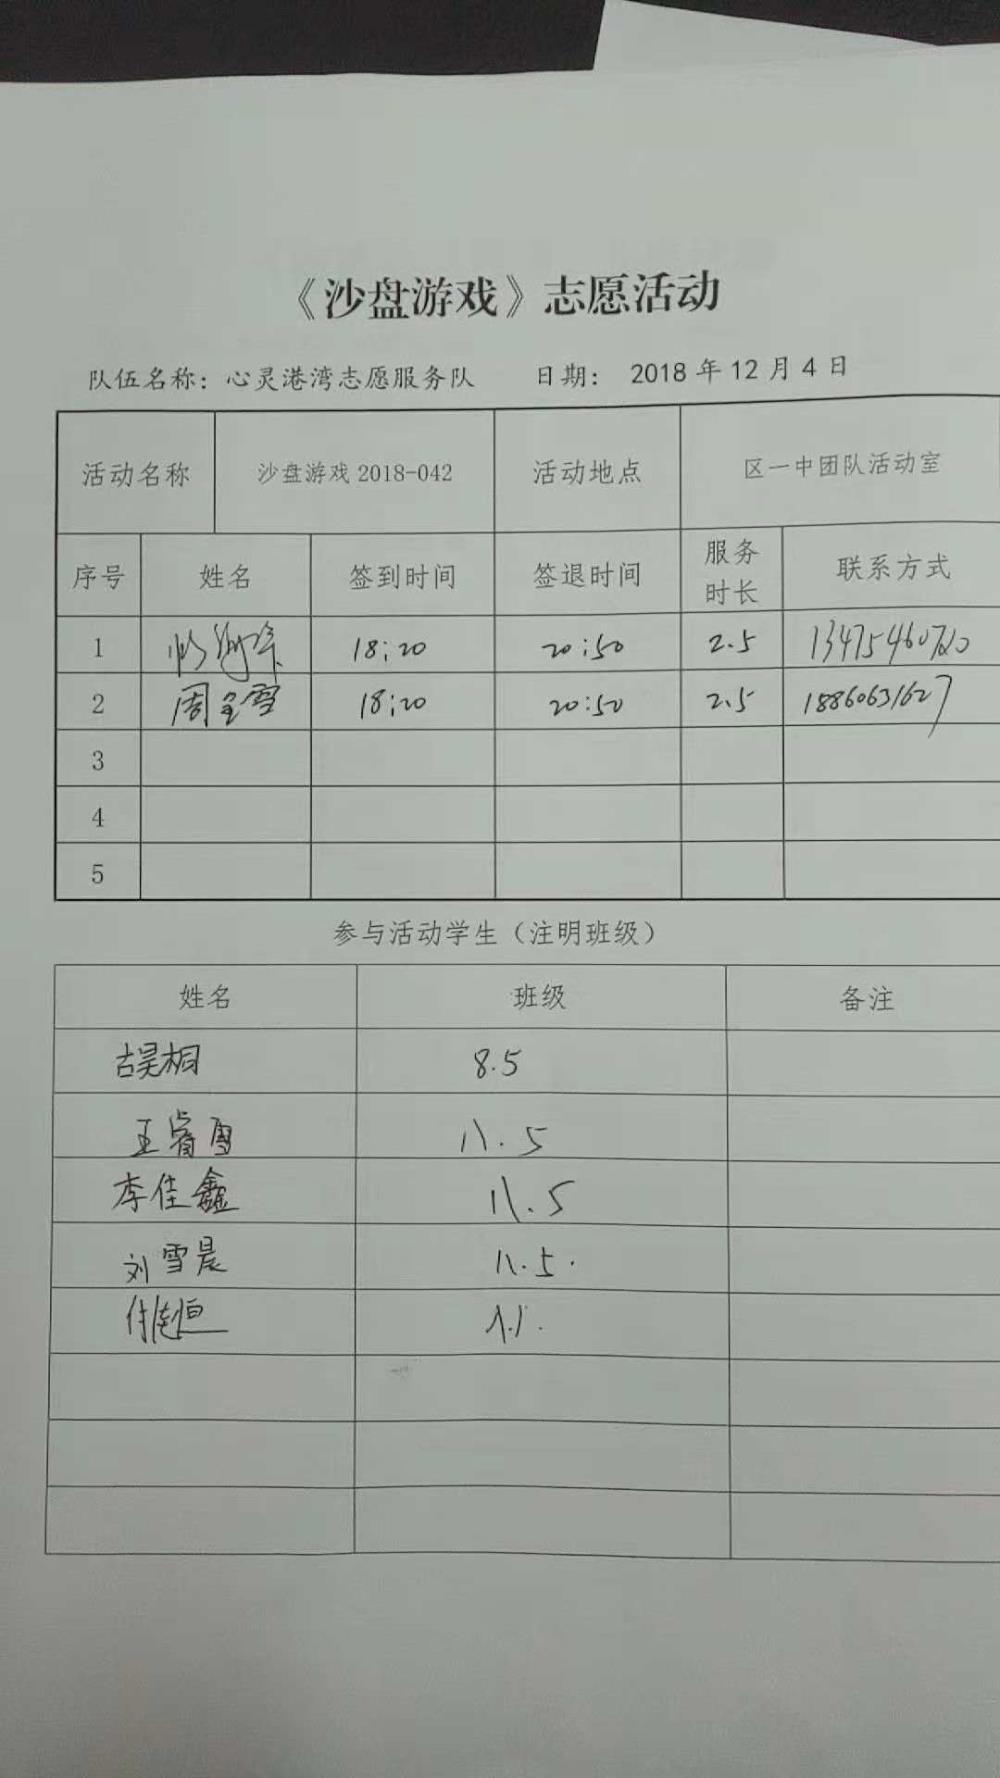 《沙盘游戏》志愿活动
队伍名称：心灵港湾志愿服务队 日期： 2018 年 12 月 4 日
活动名称 沙盘游戏 2018-042 活动地点 区一中团队活动室
序号 姓名 签到时间 签退时间 服务时长 联系方式
1 18:20 20:50 2.5
2 周 雪 18:20 20:50 2.5 18860631627
3
4
5
参与活动学生（注明班级）
姓名 班级 备注
古昊桐 8.5
王睿雪 八.5
李佳鑫 八.5
刘雪晨 八.5.
付 恒 八.1.